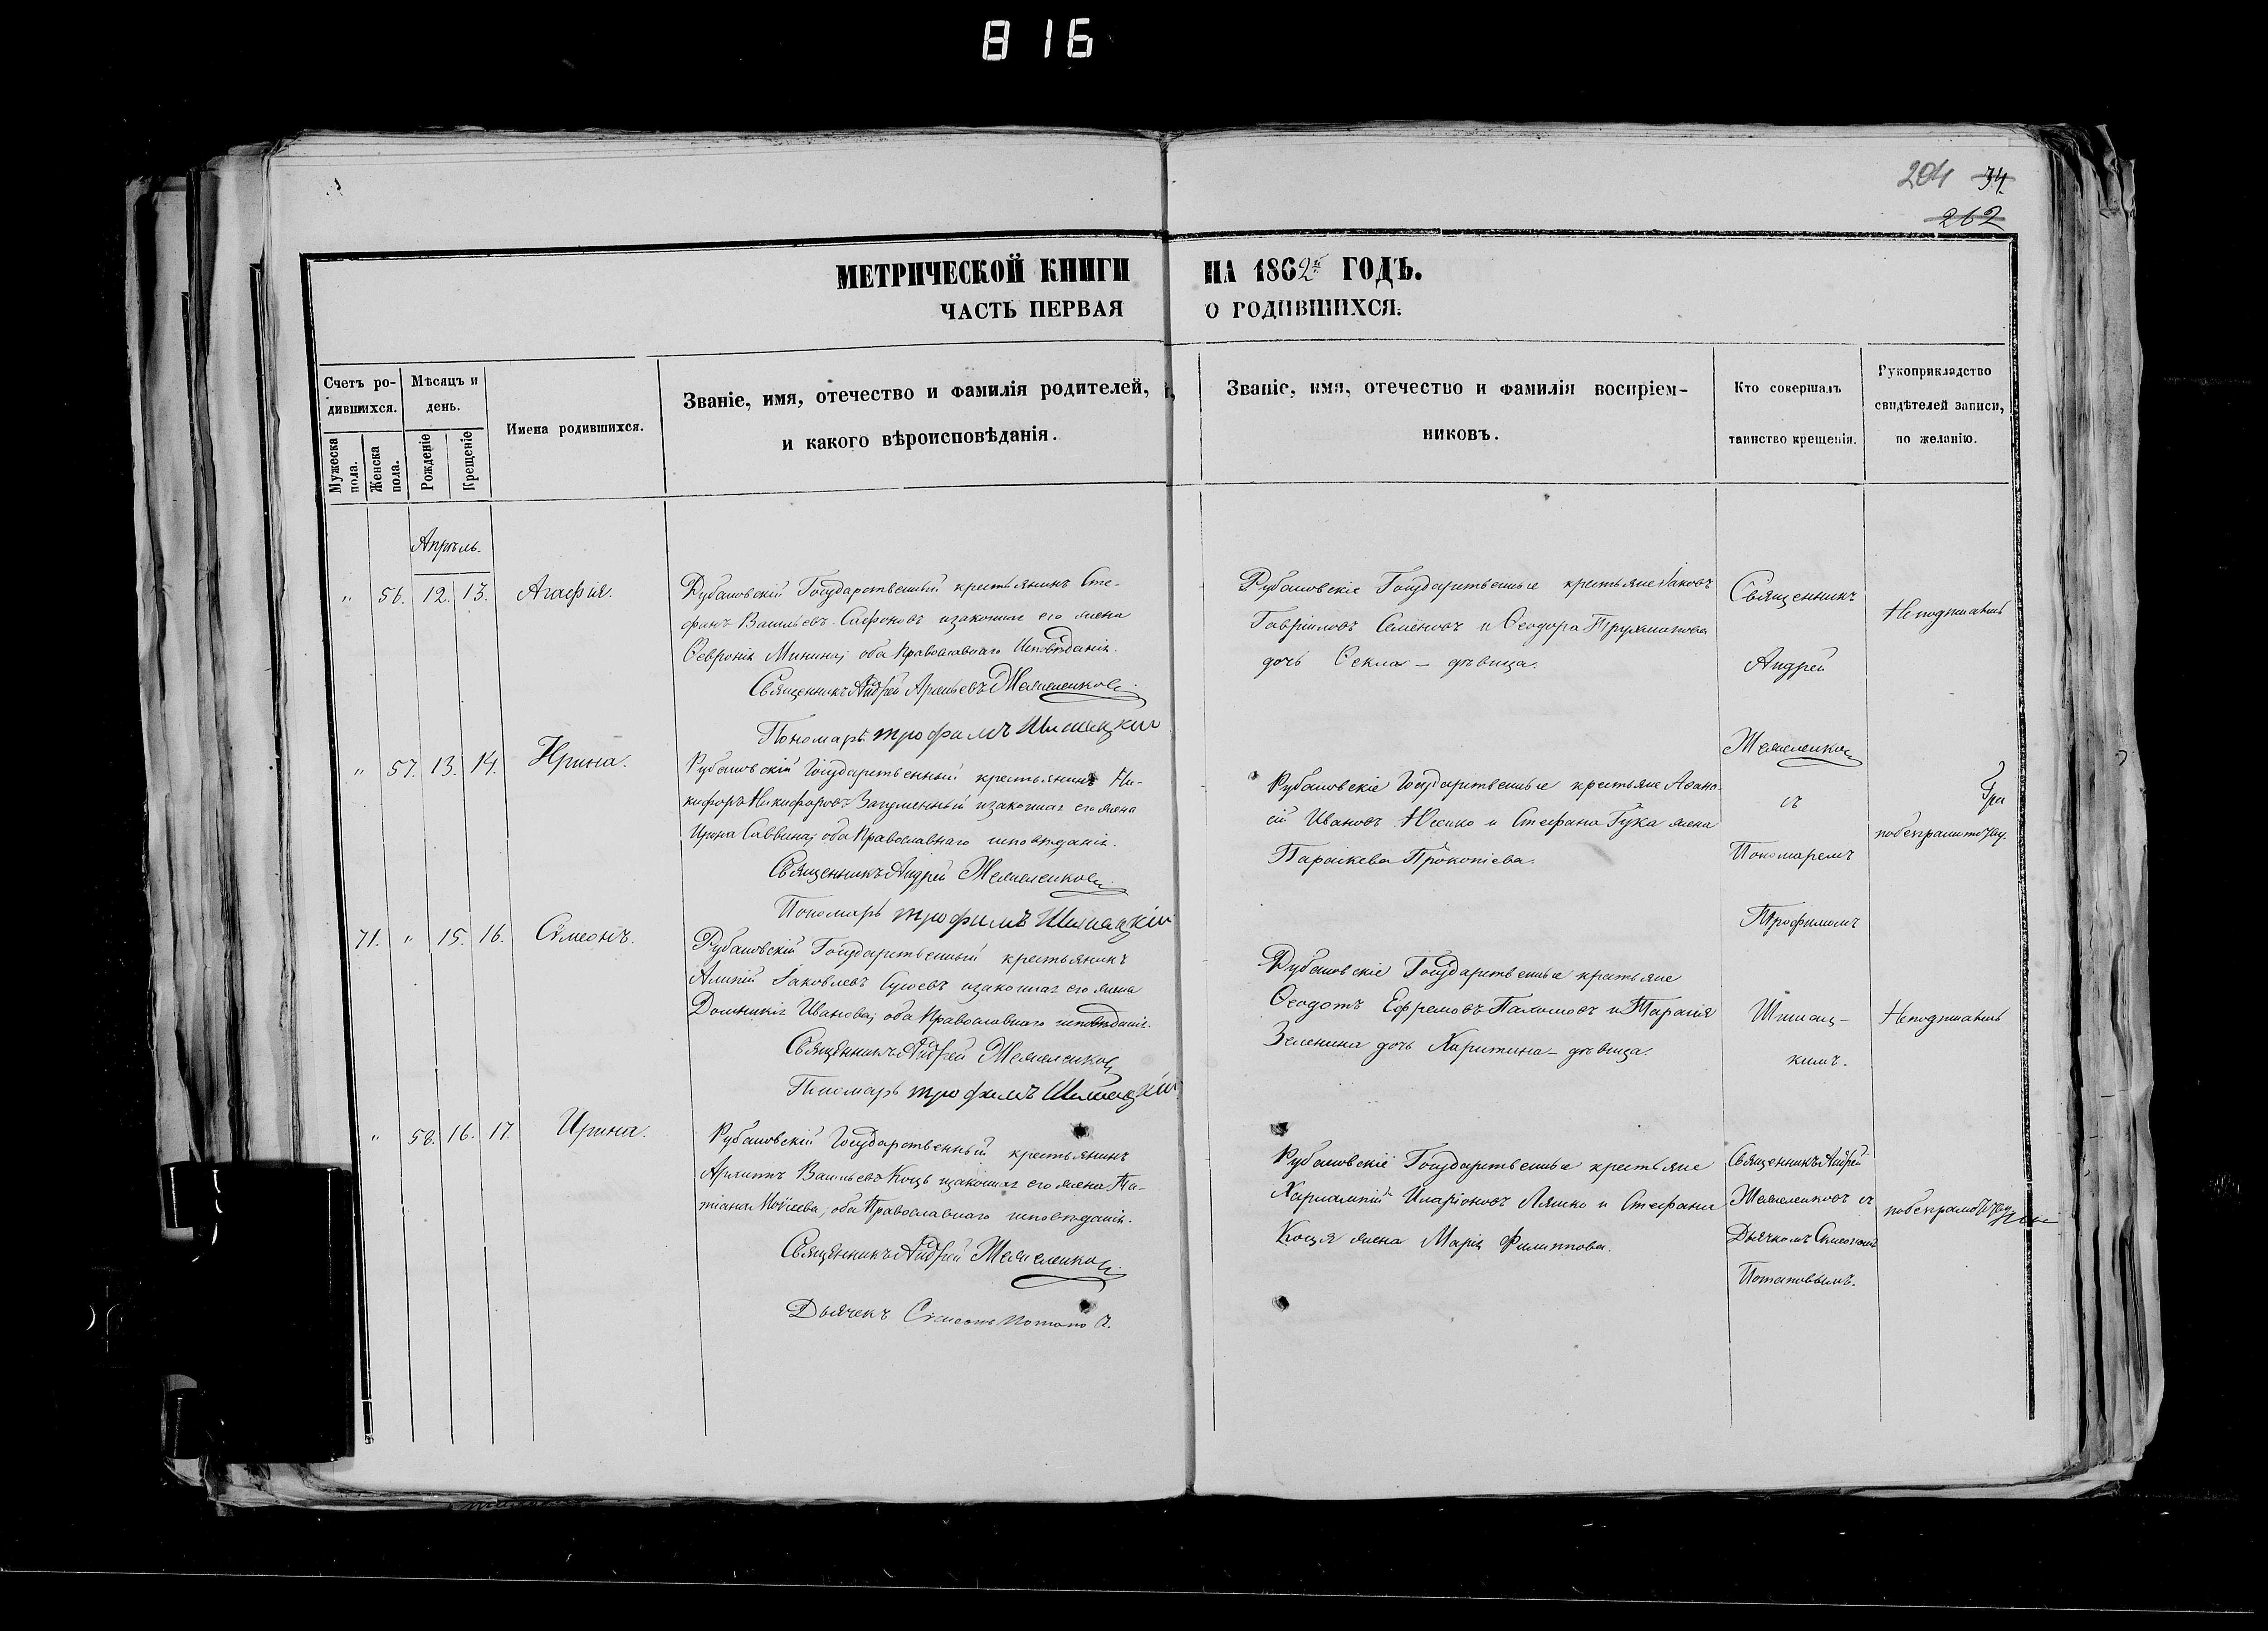 816
204 34
262
МЕТРИЧЕСКОЙ КНИГИ НА 1862й ГОДЪ.
ЧАСТЬ ПЕРВАЯ О РОДИВШИХСЯ.
Счетъ ро-
дившихся.
Мужеска пола.
Женска пола.
Мѣсяцъ и
день.
Рожденіе
Крещеніе
Имена родившихся.
Званіе, имя, отечество и фамилія родителей,
и какого вѣроисповѣданія.
Званіе, имя, отечество и фамилія воспріем-
никовъ.
Кто совершалъ
таинство крещенія.
Рукоприкладство
свидѣтелей записи,
по желанію.
Апрѣль.
" 56. 12. 13. Агафія.
Рубановскій Государственный крестьянинъ Сте-
фанъ Васильевъ Сафоновъ изаконная его жена
Февронія Минина; оба Православнаго Исповѣданія.
Священникъ Андрей Арсеньевъ
Пономарь Трофимъ
Рубановскіе Государственные крестьяне Іаковъ
Гавріиловъ Семеновъ и Ѳеодора
дочь Ѳекла – дѣвица.
Священникъ
Андрей
съ
Пономаремъ
Трофимомъ
кимъ.
" 57. 13. 14. Ирина.
Рубановскій Государственный крестьянинъ Ни-
кифоръ Никифоровъ Загуменный изаконная его жена
Ирина Саввина; оба Православнаго исповѣданія.
Священникъ Андрей
Пономарь Трофимъ
Рубановскіе Государственные крестьяне Аѳана-
сій Ивановъ и Стефана Гука жена
Параскева Прокопіева.
71. " 15. 16. Сѵмеонъ.
Рубановскій Государственный крестьянинъ
Алипій Іаковлевъ изаконная его жена
Домникія Иванова; оба Православнаго исповѣданія.
Священникъ Андрей
Пономарь Трофимъ
Рубановскіе Государственные крестьяне
Ѳеодотъ Ефремовъ и Тарасія
Зеленина дочь Харитина – дѣвица.
" 58. 16. 17. Ирина.
Рубановскій Государственный крестьянинъ
Васильевъ Коцъ изаконная его жена Та-
тіана Моѵсеева; оба Православнаго исповѣданія.
Священникъ Андрей
Дьячекъ Сѵмеонъ
Рубановскіе Государственные крестьяне
Харлампій Иларіоновъ Ляшко и Стефана
Коця жена Марія Филиппова.
Священникъ Андрей
съ
Дьячкомъ Сѵмеономъ
Потаповымъ.